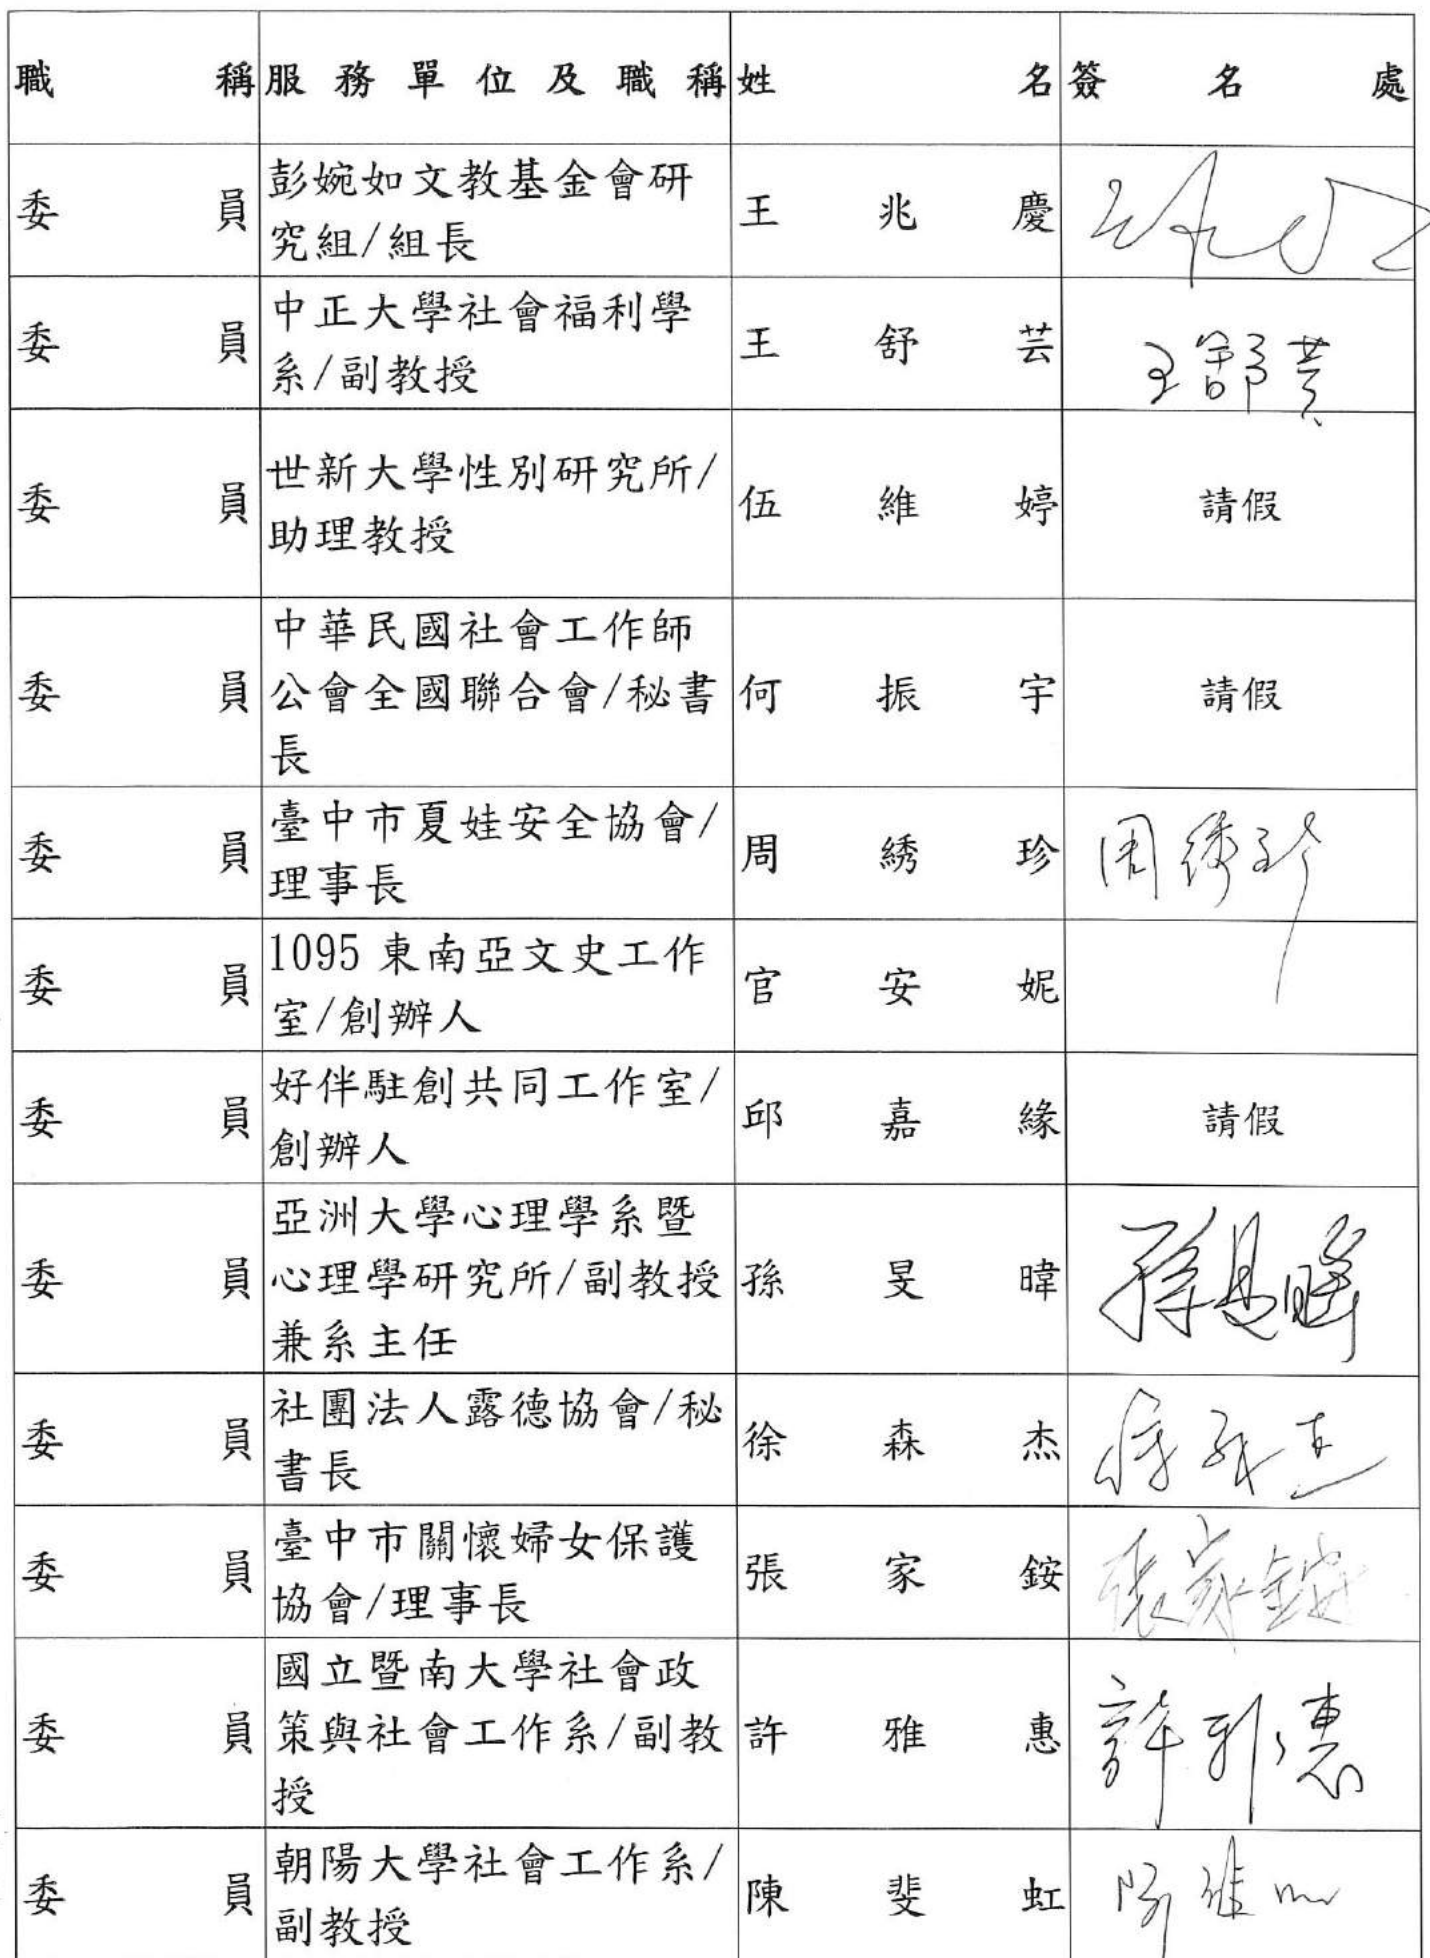 職稱 服務單位及職稱 姓名 簽名處
委員 彭婉如文教基金會研
究組/組長 王兆慶
委員 中正大學社會福利學
系/副教授 王舒芸 王舒芸
委員 世新大學性別研究所/
助理教授 伍維婷 請假
委員 中華民國社會工作師
公會全國聯合會/秘書
長 何振宇 請假
委員 臺中市夏娃安全協會/
理事長 周綉珍 周綉珍
委員 1095 東南亞文史工作
室/創辦人 官安妮
委員 好伴駐創共同工作室/
創辦人 邱嘉緣 請假
委員 亞洲大學心理學系暨
心理學研究所/副教授
兼系主任 孫旻暐 孫旻暐
委員 社團法人露德協會/秘
書長 徐森杰 徐森杰
委員 臺中市關懷婦女保護
協會/理事長 張家銨 張家銨
委員 國立暨南大學社會政
策與社會工作系/副教
授 許雅惠 許雅惠
委員 朝陽大學社會工作系/
副教授 陳斐虹 陳斐虹